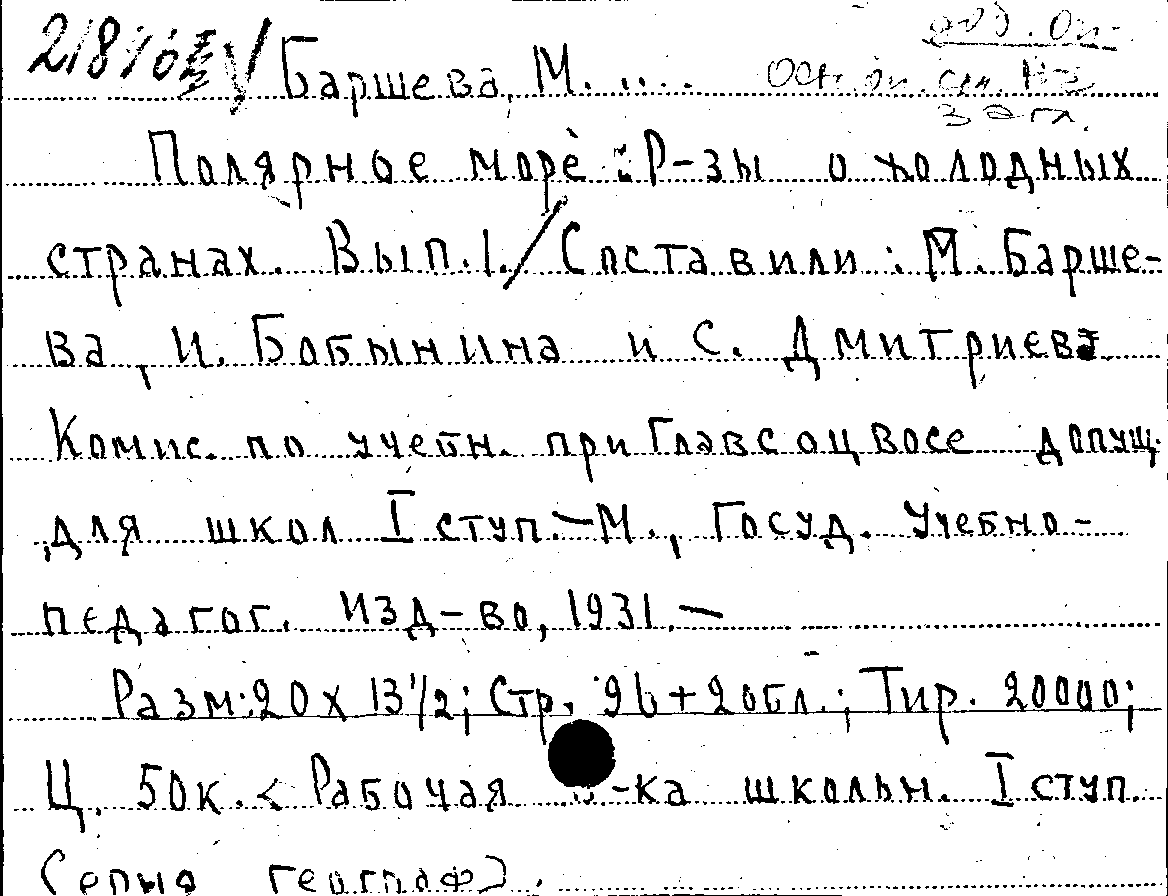 доб. оп.
Баршева, М. ....
загл.
Полярное море : Р-зы о холодных
странах. Вып.1./Составили : М. Барше-
ва, И. Бобынина и С. Дмитриева
Комис. по учебн. при Главсоцвосе допущ.
для школ I ступ.—М., Госуд. Учебно-
педагог. изд-во, 1931.—
Разм:20 х 13½; Стр. 96+2обл.; Тир. 20000;
Ц. 50к.< Рабочая -ка школьн. I ступ.
Серия географ).